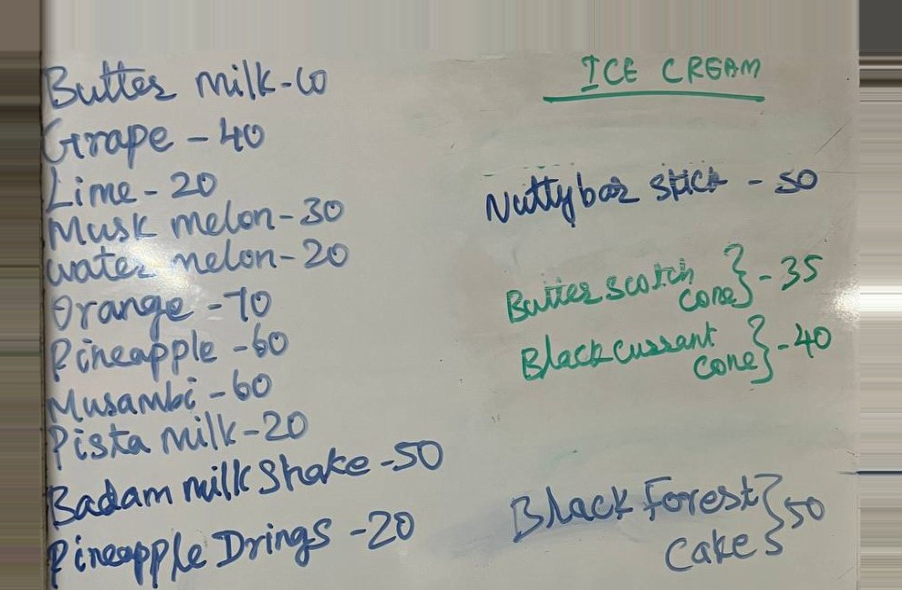 Butter milk-60
Grape - 40
Lime - 20
Musk melon-30
water melon-20
Orange -70
Pineapple -60
Musambi -60
Pista milk-20
Badam milk Shake -50
Pineapple Drings -20
ICE CREAM
Nutty bar stick - 50
Butter scotch
cone} -35
Black currant
cone} -40
Black Forest
Cake} 50